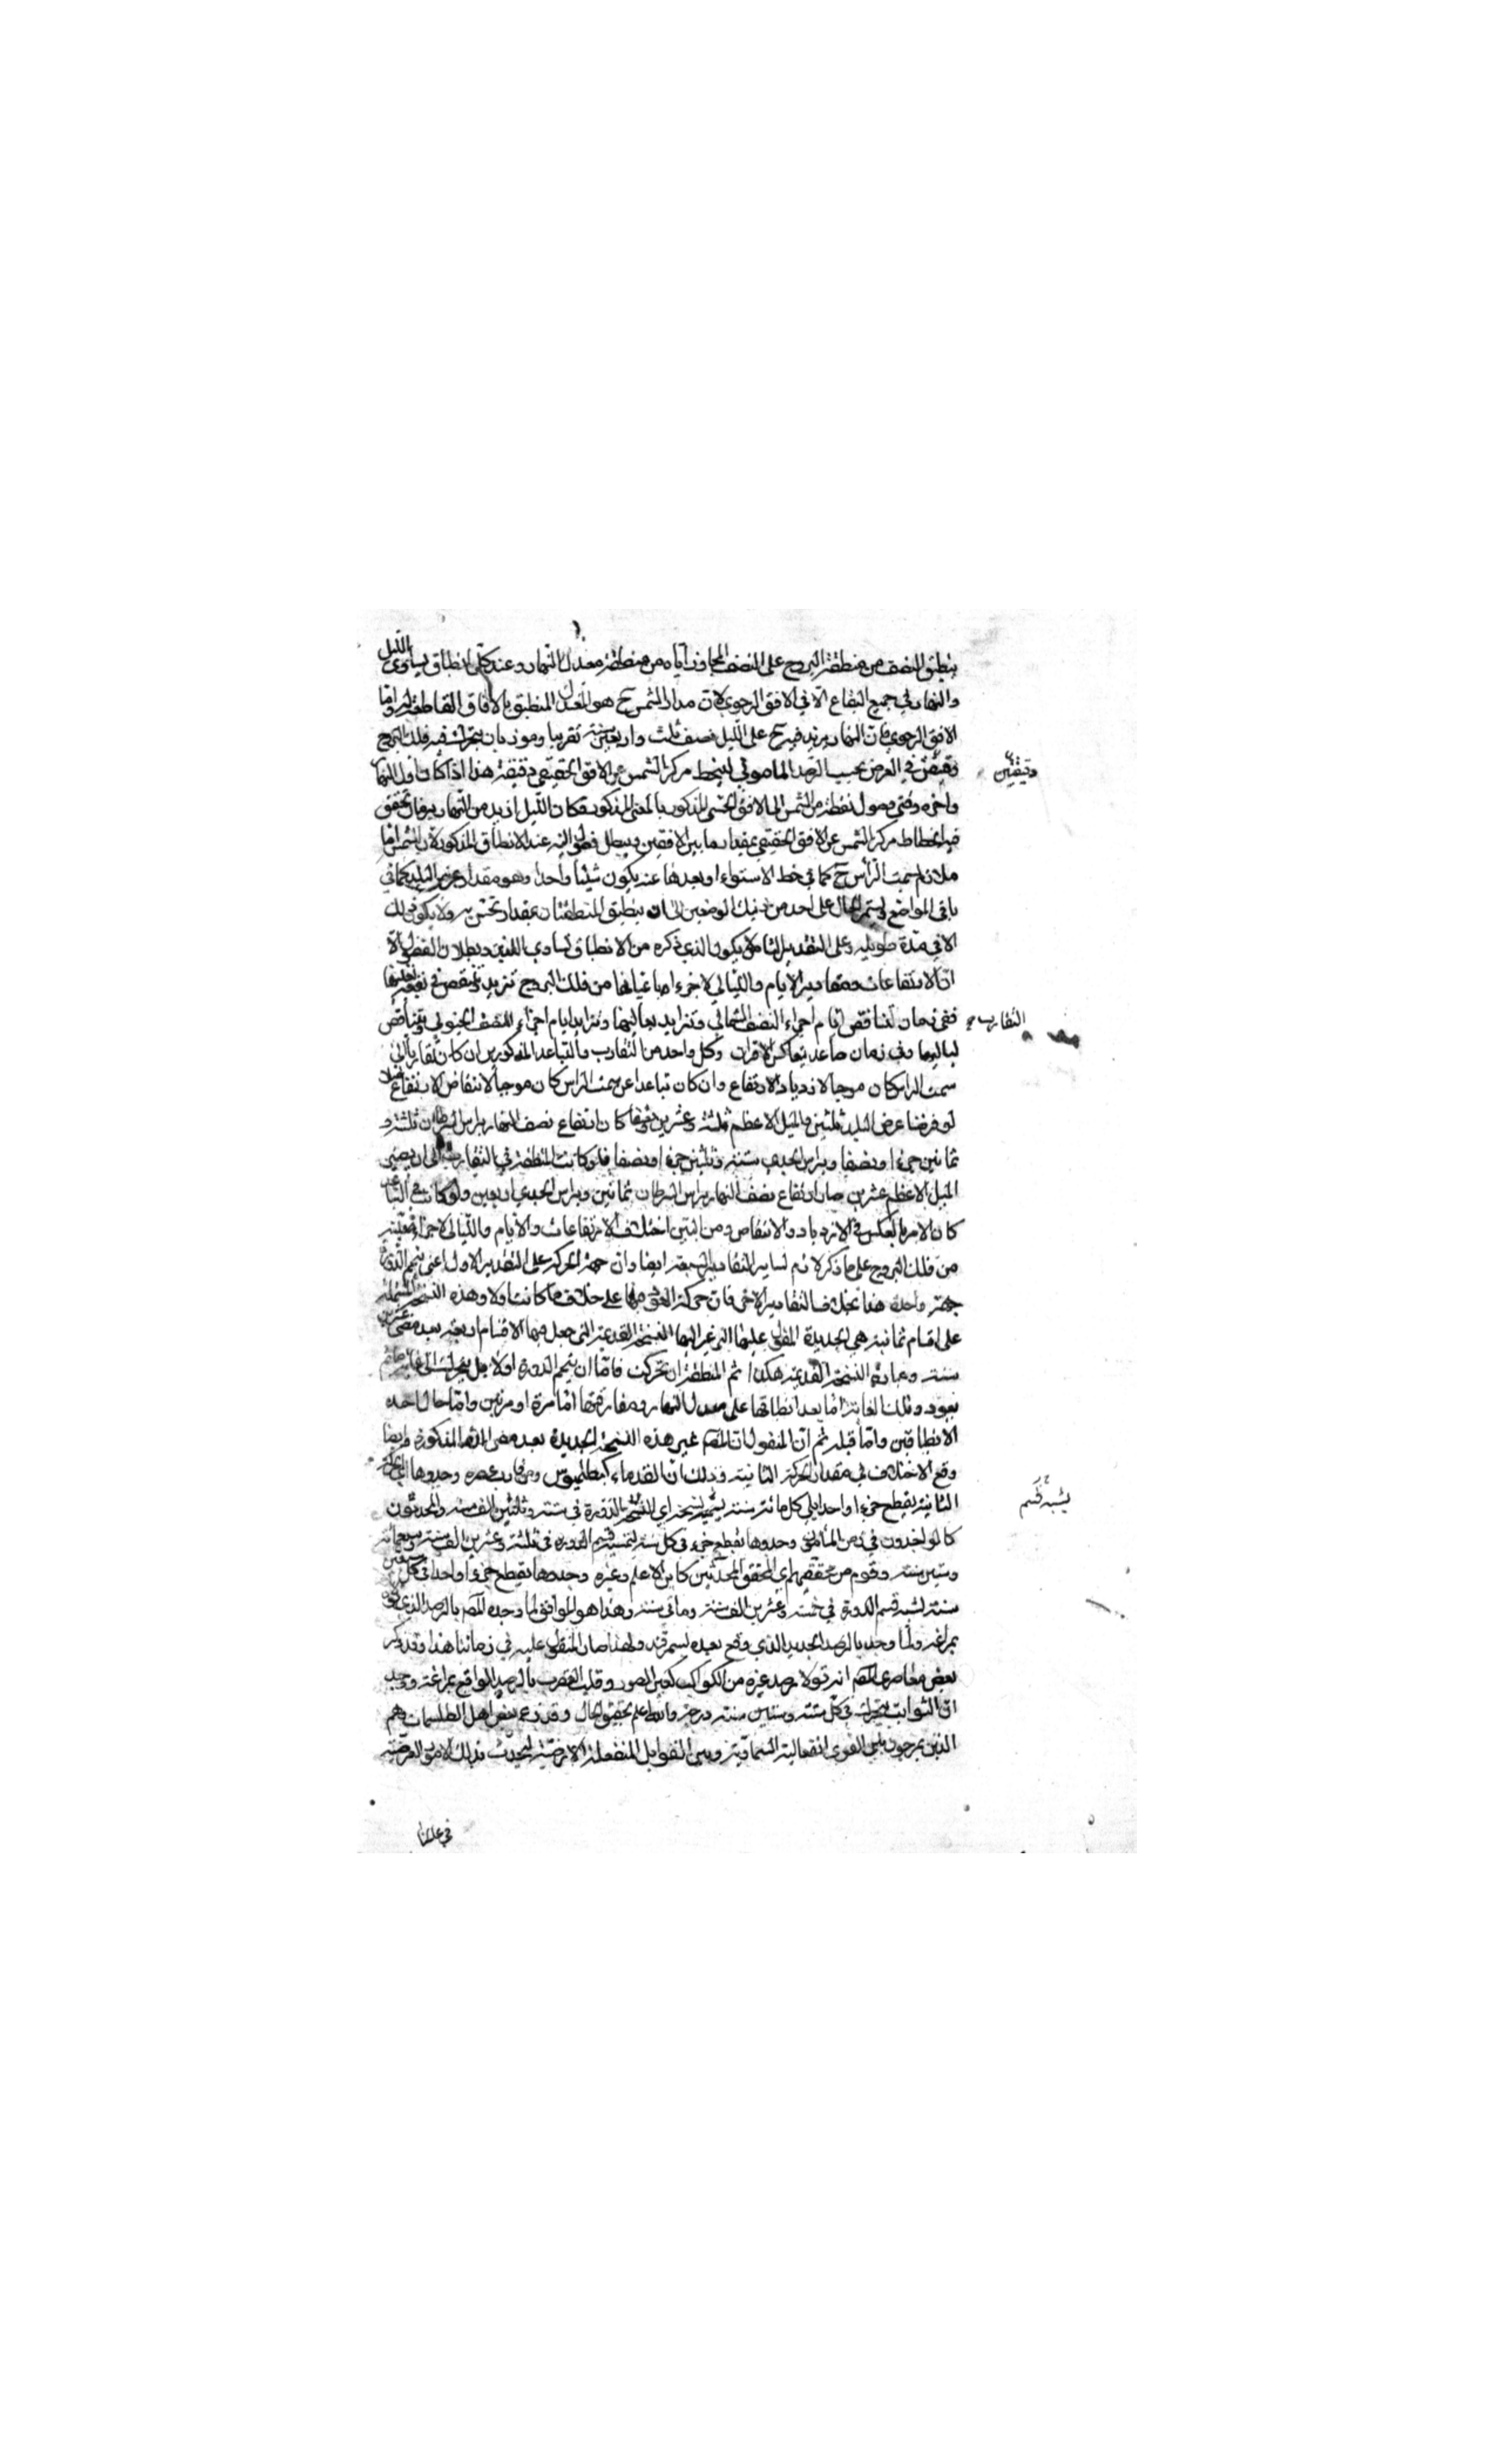 ينطبق النصف من منطقة البروج على النصف المجاوز اياه من منطقة معدل النهار وعند كل انطباق يساوى الليل
والنهار في جميع البقاع الا في الافق الرحوى لان مدار الشمس ح هو المعدل المنطبق بالافاق القاطعة له واما
الافق الرحوى فان النهار يزيد فيه ح على الليل نصف ثلث واربعين سنة تقريبا وهو زمان يتحرك فيه فلك البروج
دقيقتين في العرض بحسب الرصد المأموني لينحط مركز الشمس عن الافق الحقيقي دقيقة هذا اذا كان اول النهار
دقيقتين
واخره وقتى وصول نقطة من الشمس الى الافق الحسى المذكور بالمعنى المذكور فكان الليل ازيد من النهار بزمان تحقق
فيه انحطاط مركز الشمس عن الافق الحقيقي بمقدار ما بين الافقين ويبطل فصول السنة عند الانطباق المذكور لان الشمس اما
ملازم لسمت الرأس ح كما في خط الاستواء او بعدها عنه يكون شيئا واحدا وهو مقدار عرض البلد كما في
باقى المواضع ويستمر الحال على احد من ذينك الوضعين الى ان ينطبق المنطقتان بمقدار تحس به ولا يكون ذلك
الا في مدة طويلة وعلى التقدير الثامن لا يكون الذي ذكره من الانطباق وتساوي الليل وبطلان الفصول الا
ان الارتفاعات ومقادير الايام والليالي لاجزاء باعيانها من فلك البروج تتزيد وتنقص في بقعة بعينها
ففي زمان التقارب تتناقص ايام اجزاء النصف الشمالي وتتزايد لياليها وتتزايد ايام اجزاء النصف الجنوبي وتتناقص
التقارب
لياليها وفى زمان صاعد يتعاكس الاقران وكل واحد من التقارب والتباعد المذكورين ان كان تقاربا الى
سمت الراس كان موجبا لازدياد الارتفاع وان كان تباعدا عن سمت الراس كان موجبا لانتقاص الارتفاع مثلا
لو فرضنا عرض البلد ثلثين والميل الاعظم ثلثة وعشرين ونصفا كان ارتفاع نصف النهار براس السرطان ثلثة و
ثمانين جزءا ونصفا وبراس الجدي ستة وثلثين جزءا ونصفا فلو كانت المنطقة في التقارب الى ان يصير
الميل الاعظم عشرين صار ارتفاع نصف النهار براس السرطان ثمانين وبراس الجدي اربعين ولو كانت في التباعد
كان الامر بالعكس في الازدياد والانتقاص ومن البين اختلاف الارتفاعات والايام والليالى لاجزاء معينة
من فلك البروج على ما ذكر لازم لساير التقادير السبعة ايضا وان جهة الحركة على التقدير الاول اعنى تتميم الدورة
جهة واحدة هذا بخلاف التقادير الاخر فان حركة العود فيها على خلاف ما كانت اولا وهذه النسخة المشتملة
على اقسام ثمانية هي الجديدة المقول عليها التي غير اليها النسخة القديمة التى جعل فيها الاقسام اربعة بعد مضى عشرين
سنة وعبارة النسخة القديمة هكذا ثم المنطقة ان تحركت فاما ان يتم الدورة او لا بل يتحرك الى غاية ما ثم
يعود وتلك الغاية اما بعد انطباقها على معدل النهار ومفارقتها اما مرة او مرتين واما حال احد
الانطباقين واما قبله ثم ان المنقول ان المص غير هذه النسخة الجديدة بعد مضى المدة المذكورة وايضا
وقع الاختلاف في مقدار الحركة الثانية وذلك ان القدماء كبطلميوس ومن قارب عصره وجدوها اي الحركة
الثانية يقطع جزءا واحدا في كل مائة سنة يشبه قسم الدورة في ستة وثلثين الف سنة والمحدثون
يشبه قسم
كانوا يجدون في زمن المأمون وجدوها يقطع جزء في كل ست وستين سنة فيتم الدورة في ثلثة وعشرين الف سنة وسبعمائة
وستين سنة وقوم من محققيهم اي المحقق المحدثين كابن الاعلم وغيره وجدوها يقطع جزءا واحدا في كل سبعين
سنة لشبه قسم الدورة في خمسة وعشرين الف سنة ومائتي سنة وهذا هو الموافق لما وجده المص بالرصد الذي تولاه
بمراغة ولما وجد بالرصد الجديد الذي وقع بعده بسمرقند ولهذا صار المعول عليه في زماننا هذا وقد ذكر
بعض معاصرى المص انه تولا رصد عدة من الكواكب كعين الثور وقلب العقرب بالرصد الواقع بمراغة وجد
ان الثوابت يتحرك في كل ستة وستين سنة درجة والله اعلم بحقيقة الحال وقد زعم بعض اهل الطلسمات وهم
الذين يمزجون بين القوى الفعالية السماوية وبين القوابل المنفعلة الارضية ليحدث بذلك الامور الغريبة
في عالمنا